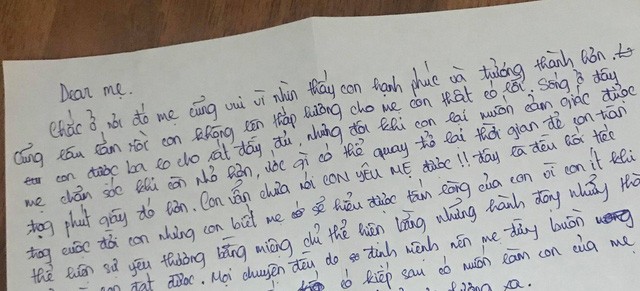 Dear mẹ.
Chắc ở nơi đó mẹ cũng vui vì nhìn thấy con hạnh phúc và trưởng thành hơn.
Cũng lâu lắm rồi con không lên thắp hương cho mẹ con thật có lỗi. Sống ở đây
con được ba lo cho rất đầy đủ nhưng đôi khi con lại muốn cảm giác được
mẹ chăm sóc khi còn nhỏ hơn, ước gì có thể quay trở lại thời gian để con trân
trọng phút giây đó hơn. Con vẫn chưa nói CON YÊU MẸ được!! đây là điều hối tiếc
trong cuộc đời con nhưng con biết mẹ có sẽ hiểu được tấm lòng của con vì con ít khi
thể hiện sự yêu thương bằng miệng chỉ thể hiện bằng những hành động những thứ
con đạt được. Mọi chuyện đều do định mệnh nên mẹ đừng buồn
có kiếp sau có muốn làm con của mẹ
xa.